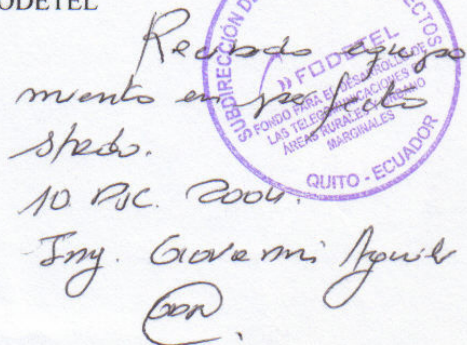 FODETEL
Recibido equipa
miento en perfecto
stado.
10 DIC. 2004.
Ing. Giovanni Aguilar
SUBDIRECCIÓN DE ECTOS
FODETEL
FONDO PARA EL DESARROLLO DE
LAS TELECOMUNICACIONES EN
ÁREAS RURALES Y URBANO
MARGINALES
QUITO - ECUADOR